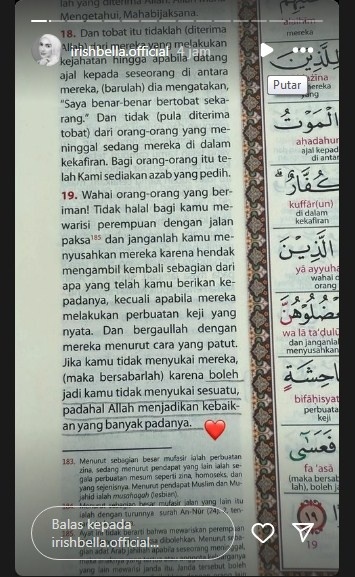 18. Dan tobat itu tidaklah (diterima
irishbella.official 4 jam
mereka yang melakukan
kejahatan hingga apabila datang
ajal kepada seseorang di antara
mereka, (barulah) dia mengatakan,
"Saya benar-benar bertobat seka-
rang." Dan tidak (pula diterima
tobat) dari orang-orang yang me-
ninggal sedang mereka di dalam
kekafiran. Bagi orang-orang itu te-
lah Kami sediakan azab yang pedih.
19. Wahai orang-orang yang ber-
iman! Tidak halal bagi kamu me-
warisi perempuan dengan jalan
paksa¹⁸⁵ dan janganlah kamu me-
nyusahkan mereka karena hendak
mengambil kembali sebagian dari
apa yang telah kamu berikan ke-
padanya, kecuali apabila mereka
melakukan perbuatan keji yang
nyata. Dan bergaullah dengan
mereka menurut cara yang patut.
Jika kamu tidak menyukai mereka,
(maka bersabarlah) karena boleh
jadi kamu tidak menyukai sesuatu,
padahal Allah menjadikan kebaik-
an yang banyak padanya.
183. Menurut sebagian besar mufasir ialah perbuatan
zina, sedang menurut pendapat yang lain ialah se-
gala perbuatan mesum seperti zina, homoseks, dan
yang sejenisnya. Menurut pendapat Muslim dan Mu-
jahid ialah musahaqah (lesbian).
Balas kepada
irishbella.official...
mereka
Putar
الْمَوْتُ
ajal kepad
di antar
كُفَّارٌ
kuffār(un)
di dalam
kekafiran
الَّذِينَ
yā ayyuha
wahai o
orang
wa lā ta'ḍulū
dan janganla
menyusahkan
bifāḥisyat
perbuata
keji
فَعَسٰى
fa 'asā
(maka bersab
lah), boleh j
١٩
19